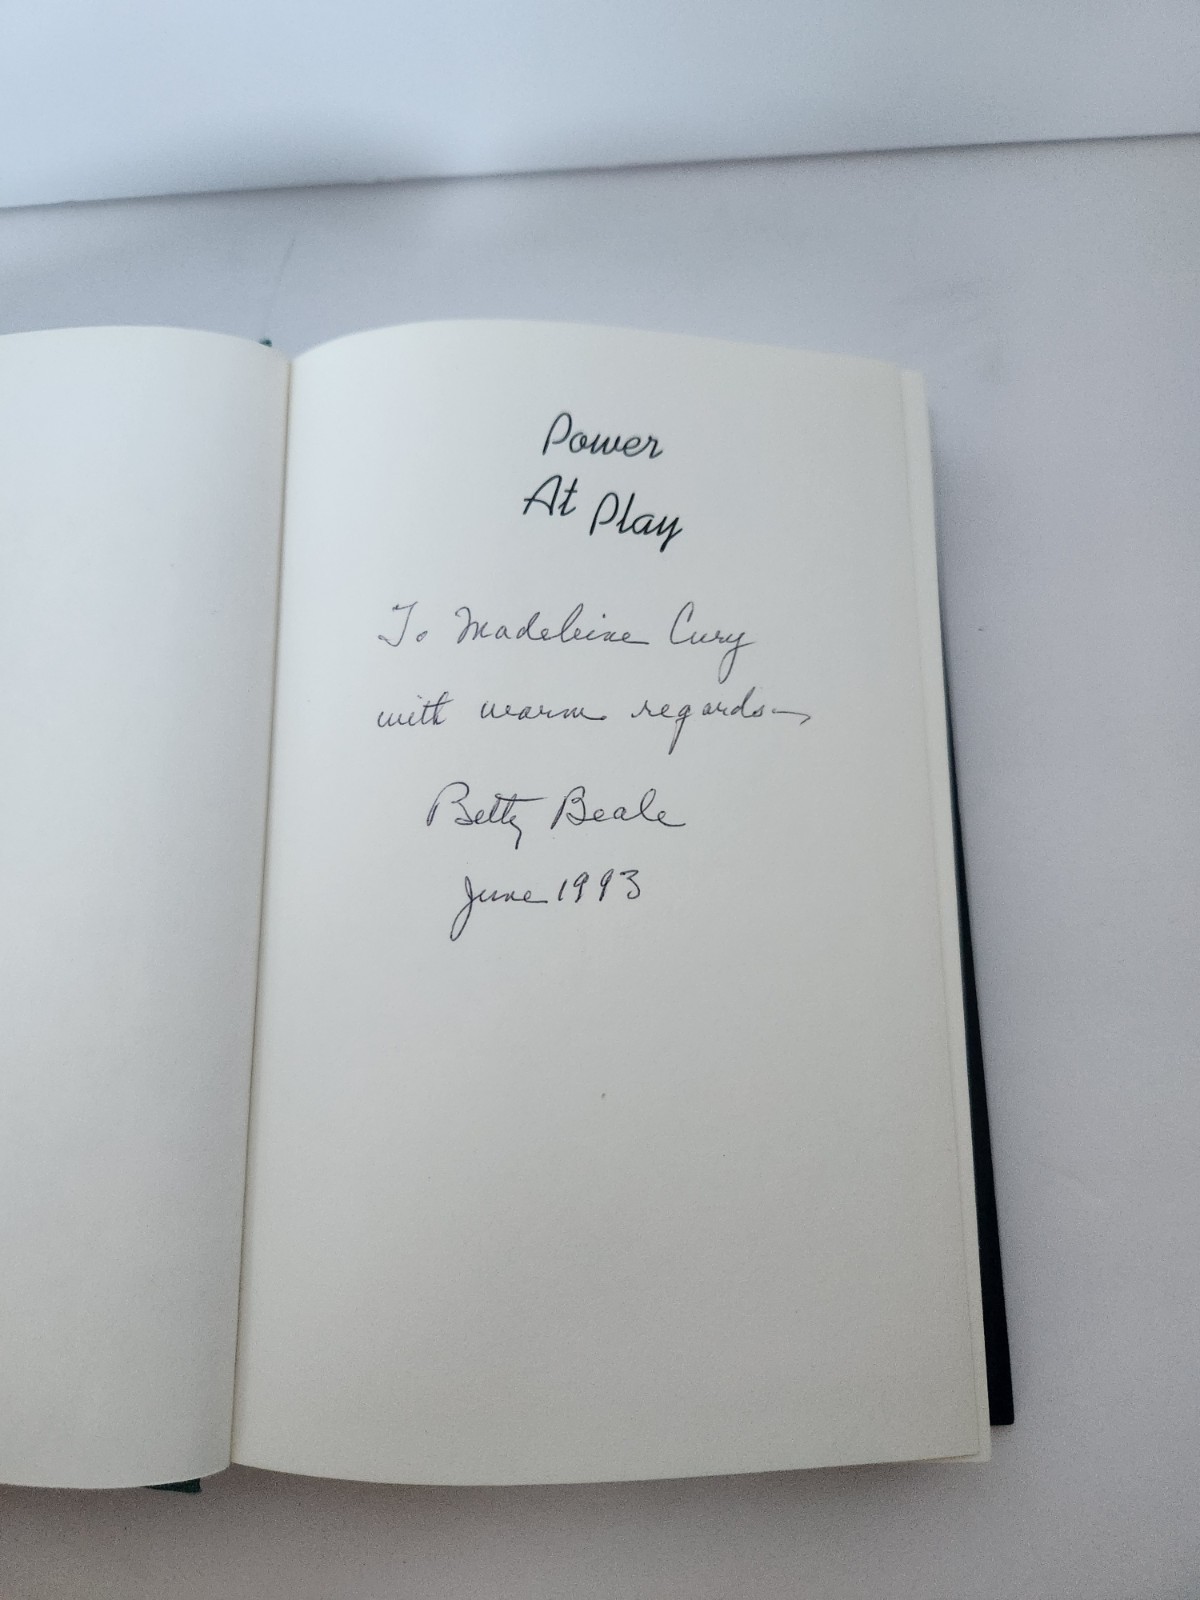 Power
At Play
To Madeleine Cury
with warm regards—
Betty Beale
June 1993